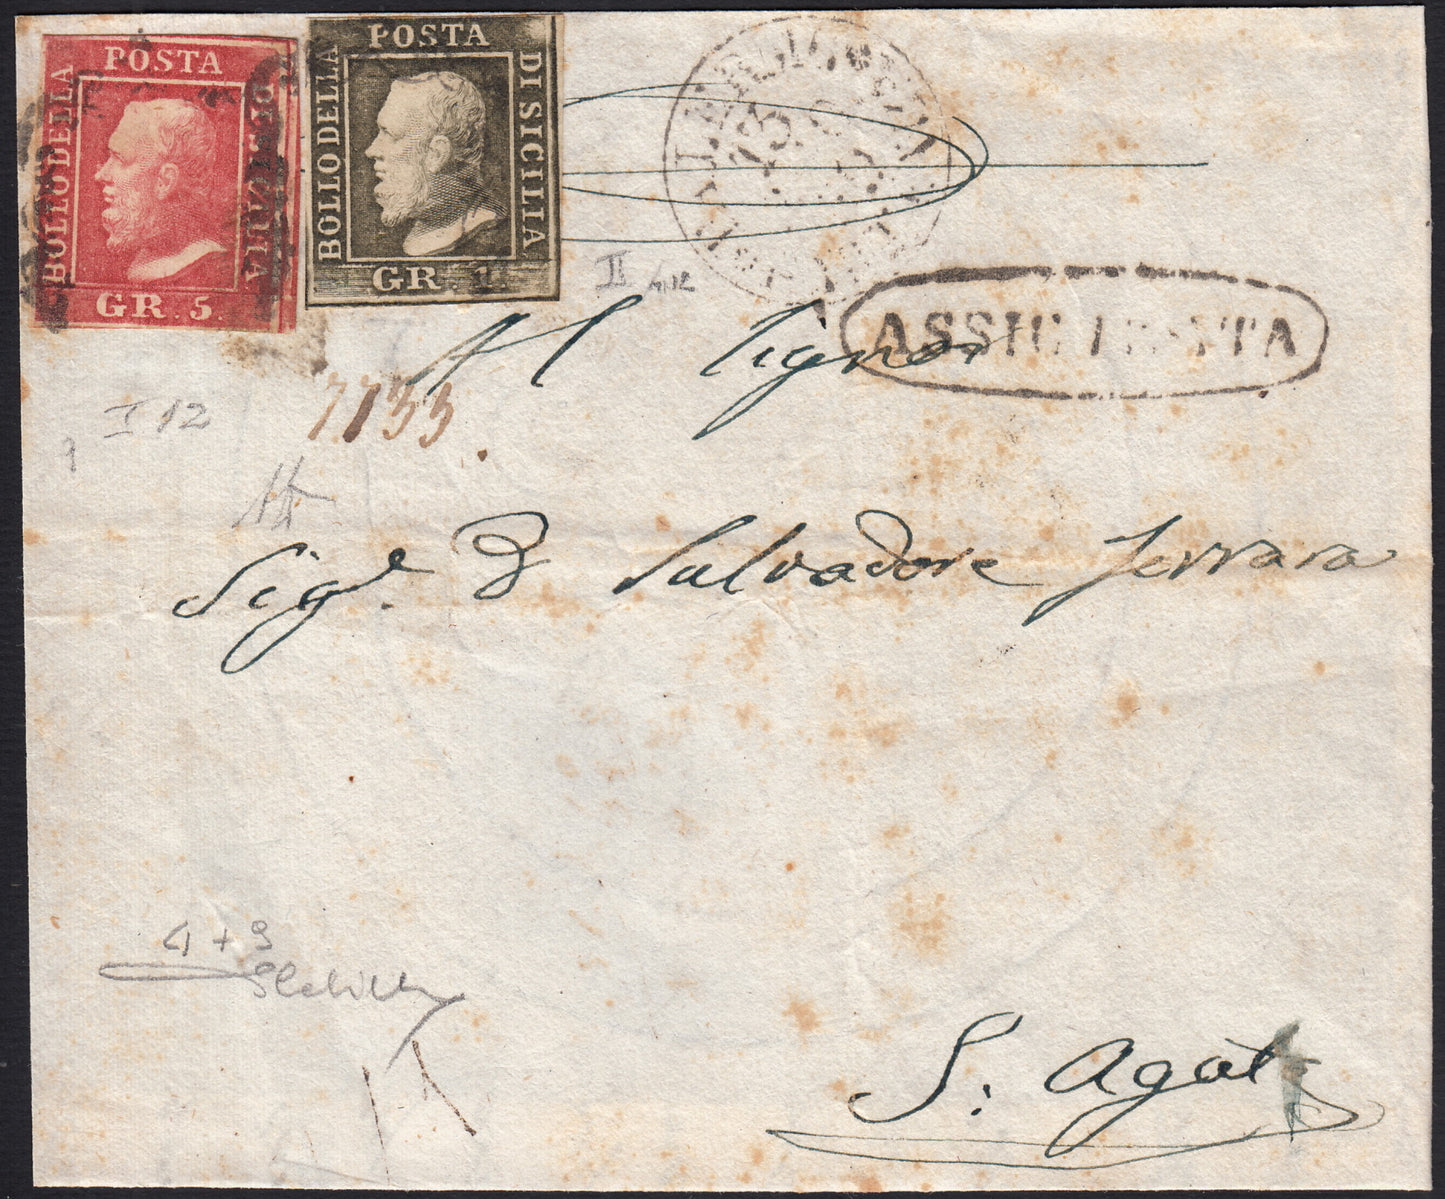 POSTA
BOLLO DELLA
DI SICILIA
GR. 5.
POSTA
BOLLO DELLA
DI SICILIA
GR. 1.
II 4,12
ASSICURATA
Al Signor
7133
I 12
Sigr. D Salvadore Ferrara
4 + 9
S. Agata